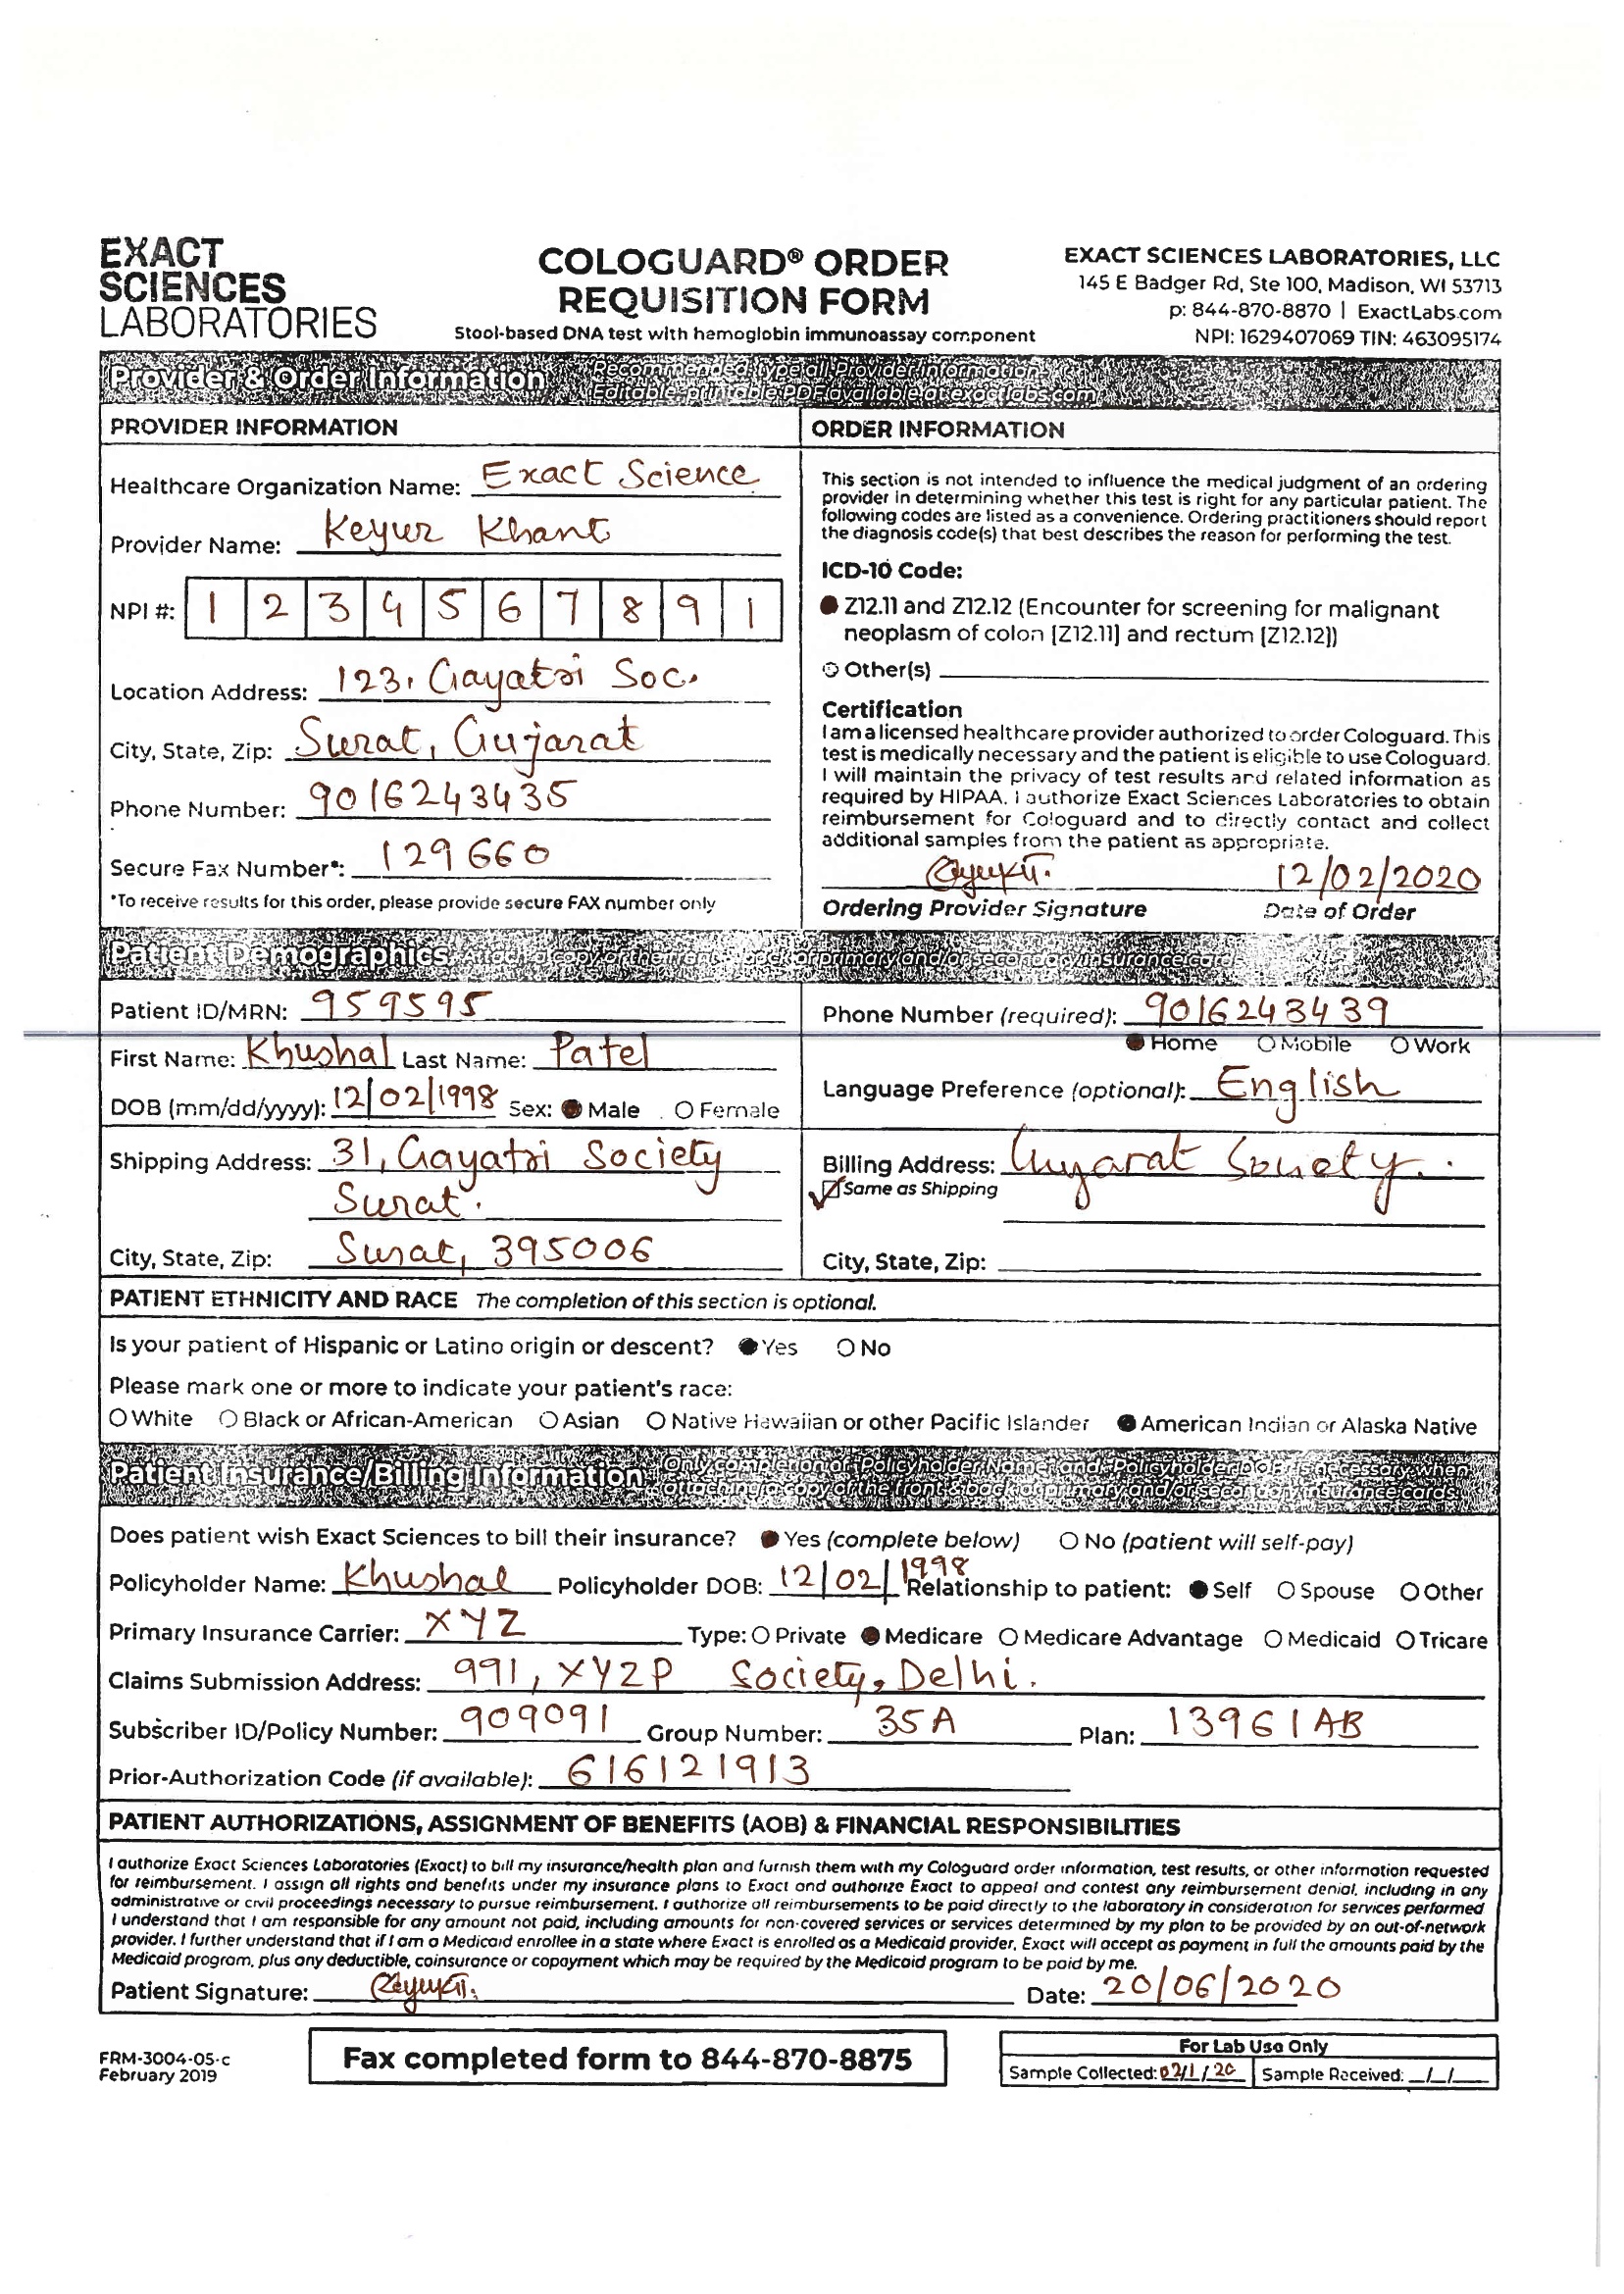 EXACT
SCIENCES
LABORATORIES
COLOGUARD® ORDER
REQUISITION FORM
Stool-based DNA test with hemoglobin immunoassay component
EXACT SCIENCES LABORATORIES, LLC
145 E Badger Rd, Ste 100, Madison, WI 53713
p: 844-870-8870 | ExactLabs.com
NPI: 1629407069 TIN: 463095174
Provider & Order Information
Recommended: type all Provider Information
Editable-printable PDF available at exactlabs.com
PROVIDER INFORMATION
Healthcare Organization Name: Exact Science
Provider Name: Keyur Khant
NPI #: 1 2 3 4 5 6 7 8 9 1
Location Address: 123, Gayatri Soc.
City, State, Zip: Surat, Gujarat
Phone Number: 9016243435
Secure Fax Number*: 129660
*To receive results for this order, please provide secure FAX number only
ORDER INFORMATION
This section is not intended to influence the medical judgment of an ordering
provider in determining whether this test is right for any particular patient. The
following codes are listed as a convenience. Ordering practitioners should report
the diagnosis code(s) that best describes the reason for performing the test.
ICD-10 Code:
Z12.11 and Z12.12 (Encounter for screening for malignant
neoplasm of colon [Z12.11] and rectum [Z12.12])
Other(s)
Certification
I am a licensed healthcare provider authorized to order Cologuard. This
test is medically necessary and the patient is eligible to use Cologuard.
I will maintain the privacy of test results and related information as
required by HIPAA. I authorize Exact Sciences Laboratories to obtain
reimbursement for Cologuard and to directly contact and collect
additional samples from the patient as appropriate.
12/02/2020
Ordering Provider Signature Date of Order
Patient Demographics Attach a copy of the front & back of primary and/or secondary insurance cards
Patient ID/MRN: 959595
First Name: Khushal Last Name: Patel
DOB (mm/dd/yyyy): 12/02/1998 Sex: Male Female
Phone Number (required): 9016243439
Home Mobile Work
Language Preference (optional): English
Shipping Address: 31, Gayatri Society
Surat.
City, State, Zip: Surat, 395006
Billing Address: Gujarat Society.
Same as Shipping
City, State, Zip:
PATIENT ETHNICITY AND RACE The completion of this section is optional.
Is your patient of Hispanic or Latino origin or descent? Yes No
Please mark one or more to indicate your patient's race:
White Black or African-American Asian Native Hawaiian or other Pacific Islander American Indian or Alaska Native
Patient Insurance/Billing Information
Only completion of Policyholder Name and Policyholder DOB is necessary when
attaching a copy of the front & back of primary and/or secondary insurance cards.
Does patient wish Exact Sciences to bill their insurance? Yes (complete below) No (patient will self-pay)
Policyholder Name: Khushal Policyholder DOB: 12/02/1998 Relationship to patient: Self Spouse Other
Primary Insurance Carrier: XYZ Type: Private Medicare Medicare Advantage Medicaid Tricare
Claims Submission Address: 991, XYZP Society, Delhi.
Subscriber ID/Policy Number: 909091 Group Number: 35A Plan: 13961AB
Prior-Authorization Code (if available): 616121913
PATIENT AUTHORIZATIONS, ASSIGNMENT OF BENEFITS (AOB) & FINANCIAL RESPONSIBILITIES
I authorize Exact Sciences Laboratories (Exact) to bill my insurance/health plan and furnish them with my Cologuard order information, test results, or other information requested
for reimbursement. I assign all rights and benefits under my insurance plans to Exact and authorize Exact to appeal and contest any reimbursement denial, including in any
administrative or civil proceedings necessary to pursue reimbursement. I authorize all reimbursements to be paid directly to the laboratory in consideration for services performed
I understand that I am responsible for any amount not paid, including amounts for non-covered services or services determined by my plan to be provided by an out-of-network
provider. I further understand that if I am a Medicaid enrollee in a state where Exact is enrolled as a Medicaid provider, Exact will accept as payment in full the amounts paid by the
Medicaid program, plus any deductible, coinsurance or copayment which may be required by the Medicaid program to be paid by me.
Patient Signature: Date: 20/06/2020
FRM-3004-05-c
February 2019
Fax completed form to 844-870-8875
For Lab Use Only
Sample Collected: 02/1/20 Sample Received: _/_/_